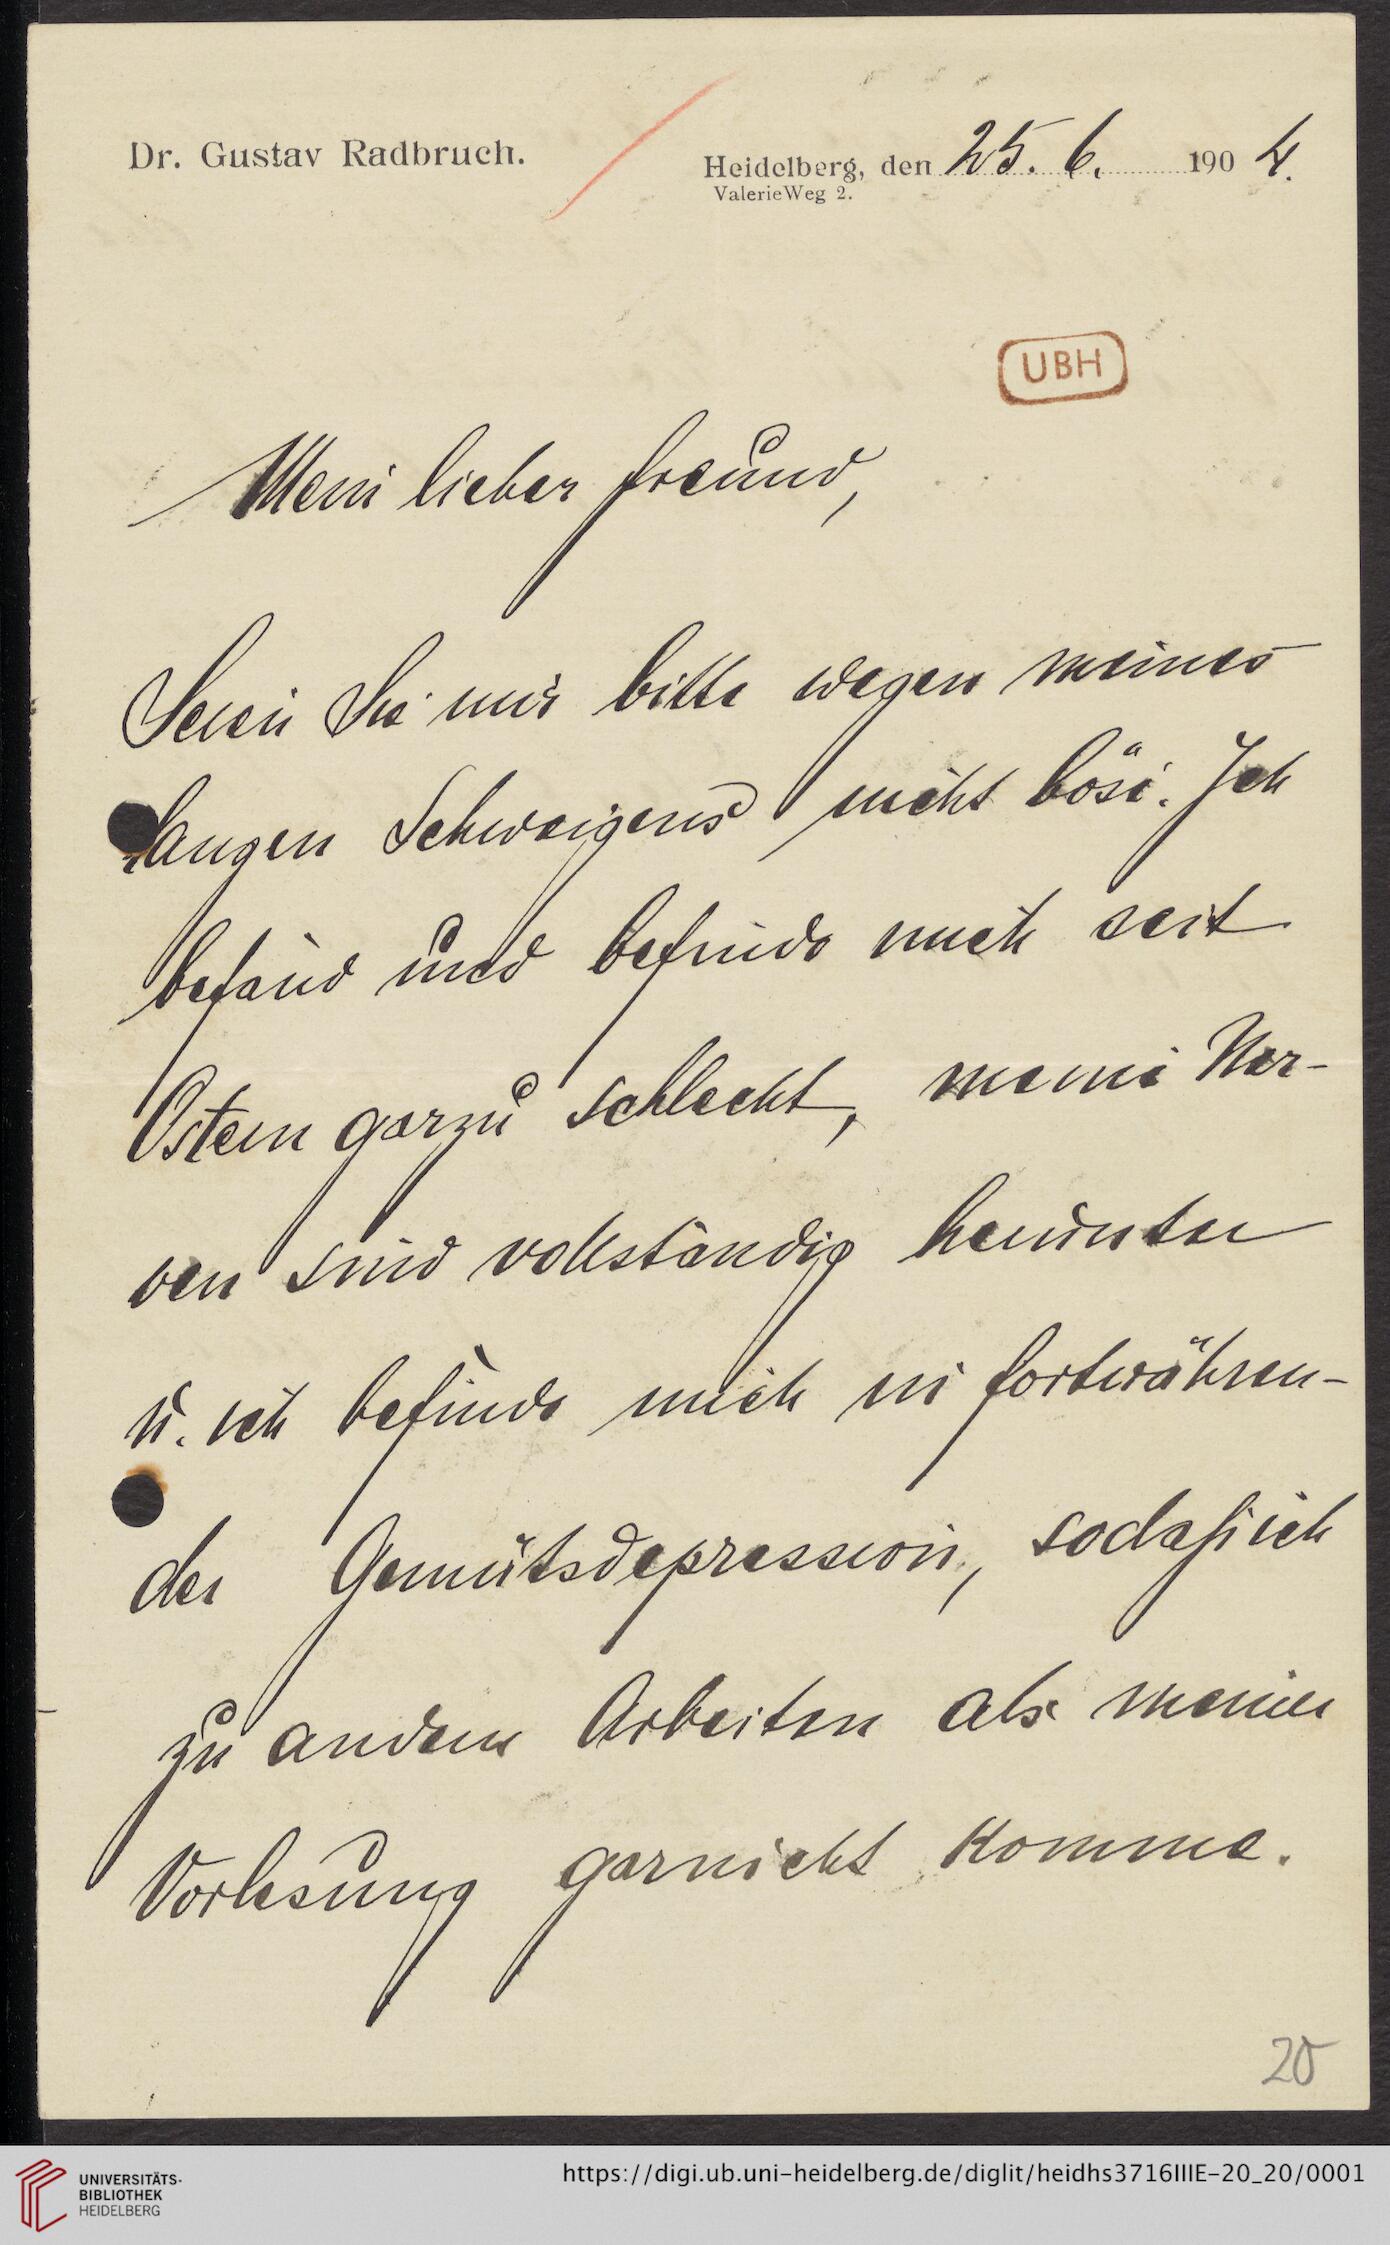 Dr. Gustav Radbruch.
Heidelberg, den 25. 6. 1904.
ValerieWeg 2.
UBH
Mein lieber Freund,
Seien Sie mir bitte wegen meines
langen Schweigens nicht böse. Ich
befand und befinde mich seit
Ostern garzu schlecht, meine Ner-
ven sind vollständig herunter
u. ich befinde mich in fortwähren-
der Gemütsdepression, sodaß ich
zu andern Arbeiten als meiner
Vorlesung garnicht komme.
20
UNIVERSITÄTS-
BIBLIOTHEK
HEIDELBERG
https://digi.ub.uni-heidelberg.de/diglit/heidhs3716IIIE-20_20/0001